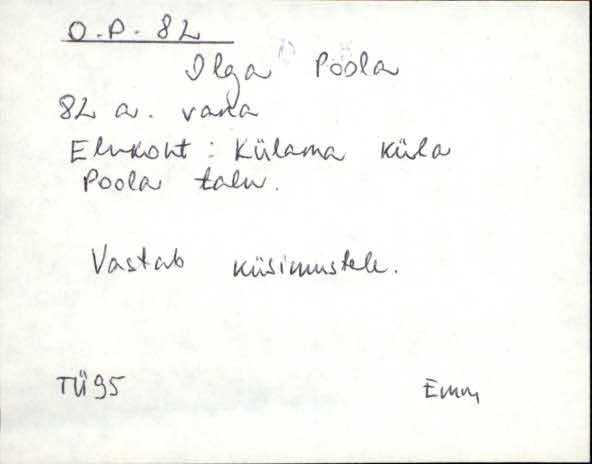 O.P. 82
Olga Poola
82 a. vana
Elukoht: Külama küla
Poola talu.
Vastab küsimustele.
TÜ 95
Emm